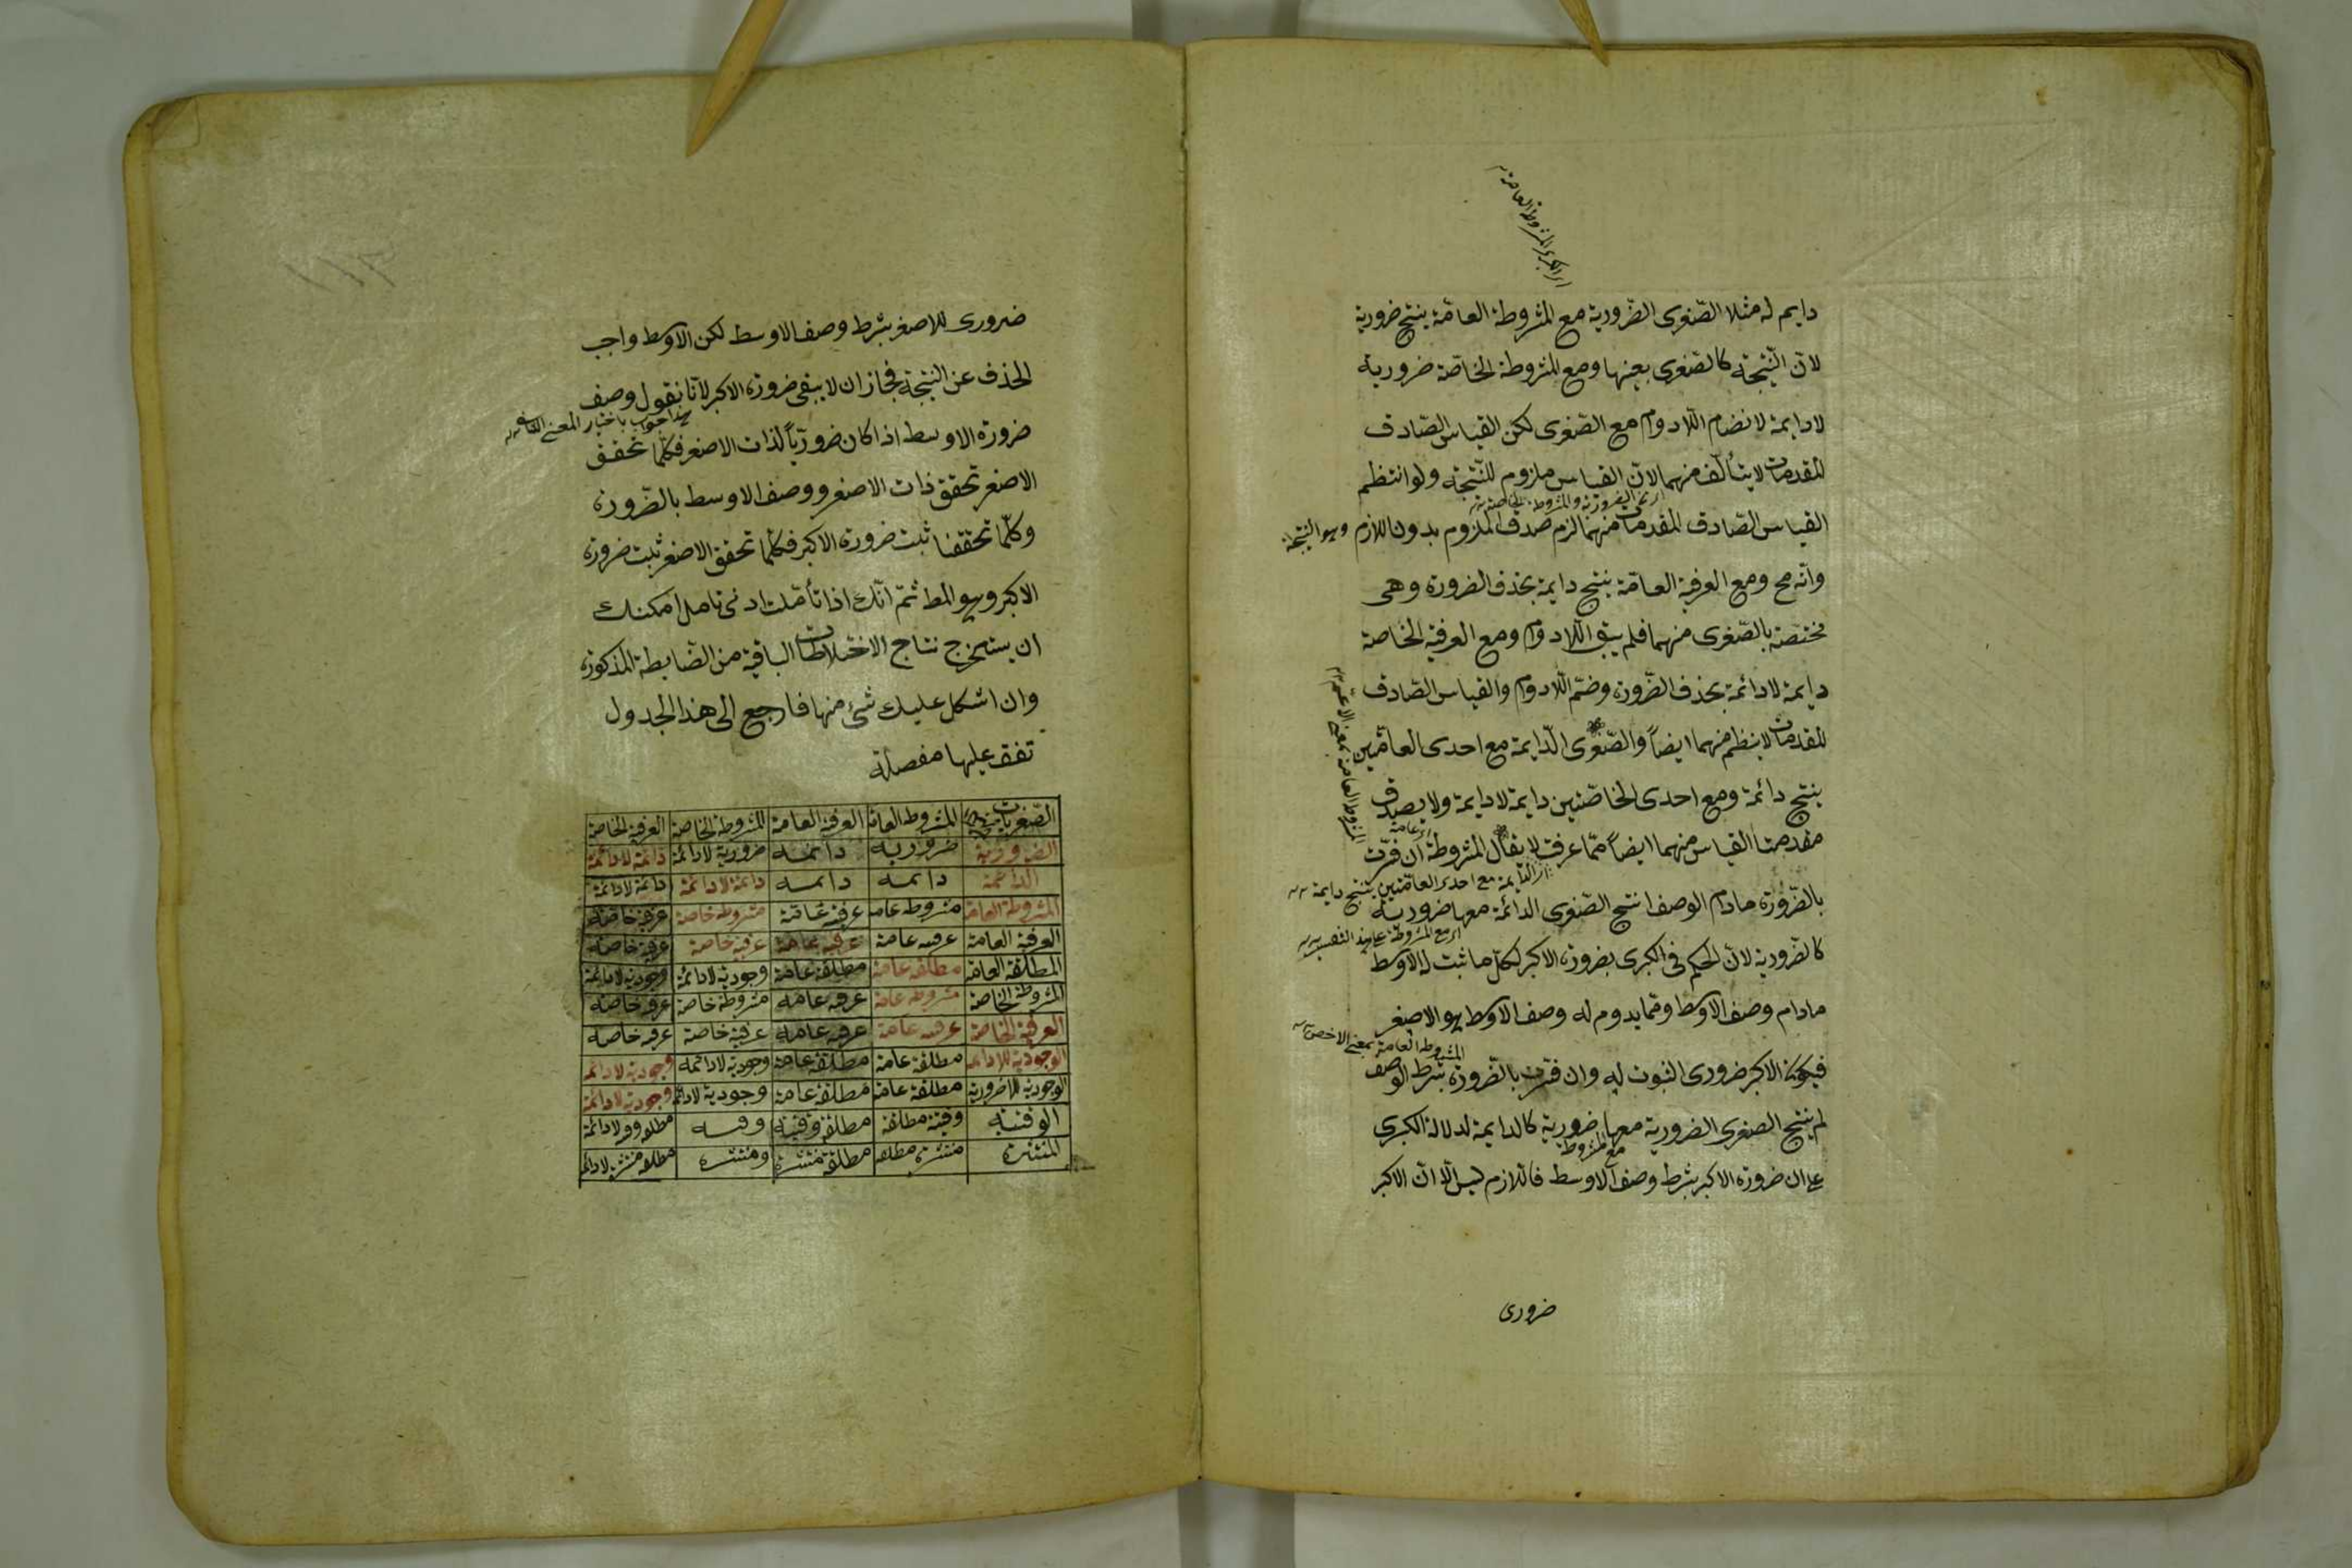 دايم له مثلا الصّغرى الضّرورية مع المشروطة العامّة ينتج ضرورية
لانّ النّتيجة كالصّغرى بعينها ومع المشروطة الخاصّة ضرورية
لادايمة لانضام اللادوام مع الصّغرى لكن القياس الصّادف
المقدمات لا يتألّف منهما لانّ القياس ملزوم للنّتيجة ولو انتظم
القياس الصّادق المقدمات منهما لزم صدق الملزوم بدون اللازم وهو النتيجة
وانّه مح ومع العرفية العامّة ينتج دايمة بحذف الضرورة وهى
مختصّة بالصّغرى منهما فلم يبق اللادوام ومع العرفية الخاصة
دايمة لادائمة بحذف الضّرورة وضمّ اللادوام والقياس الصّادف
المقدمات لا ينظم منهما ايضاً والصّغرى الدّايمة مع احدى العامّتين
ينتج دائمة ومع احدى الخاصّتين دايمة لادايمة ولا يصدق
مقدمتا القياس منهما ايضاً ممّا عرفت لا يقال المشروطة ان فسّرت
اى الدايمة مع احدى العامّتين ينتج دايمة
بالضّرورة مادام الوصف انتج الصّغرى الدائمة معها ضرورية
كالضرورية لانّ الحكم فى الكبرى بضرورة الاكبر لكلّ ما ثبت له الاوسط
مادام وصف الاوسط وممّا يدوم له وصف الاوسط هو الاصغر
المشروطة العامة بمعنى الاخص
فيكون الاكبر ضرورى الثبوت له وان فسّرت بالضّرورة بشرط الوصف
لم ينتج الصغرى الضرورية معها ضرورية كالدايمة لدلالة الكبرى
مع المشروطة
على ان ضرورة الاكبر بشرط وصف الاوسط فاللازم ليس الّا انّ الاكبر
ضرورى
ضرورى للاصغر بشرط وصف الاوسط لكن الاوسط واجب
الحذف عن النتيجة فجاز ان لا يبقى ضرورة الاكبر لانّا نقول وصف
ضرورة الاوسط اذا كان ضروريّاً لذات الاصغر فكلّما تحقق
الاصغر تحقق ذات الاصغر ووصف الاوسط بالضّرورة
وكلّما تحققا ثبت ضرورة الاكبر فكلّما تحقق الاصغر ثبت ضرورة
الاكبر وهو المط ثمّ انّك اذا تأمّلت ادنى تامل امكنك
ان يستخرج نتاج الاختلاطات الباقية من الضّابطة المذكورة
وان اشكل عليك شئ منها فارجع الى هذا الجدول
تقف عليها مفصلة
الصّغريات المشروطة العامة العرفية العامة المشروطة الخاصة العرفية الخاصة
الضرورية ضرورية دائمة ضرورية لادائمة دائمة لادائمة
الدائمة دائمة دائمة دائمة لادائمة دائمة لادائمة
المشروطة العامة مشروطة عامة عرفية عامّة مشروطة خاصة عرفية خاصة
العرفية العامة عرفية عامة عرفية عامة عرفية خاصة عرفية خاصة
المطلقة العامّة مطلقة عامة مطلقة عامة وجودية لادائمة وجودية لادائمة
المشروطة الخاصة مشروطة عامة عرفية عامة مشروطة خاصة عرفية خاصة
العرفية الخاصة عرفية عامة عرفية عامة عرفية خاصة عرفية خاصة
الوجودية اللادائمة مطلقة عامة مطلقة عامة وجودية لادائمة وجودية لادائمة
الوجودية اللاضرورية مطلقة عامة مطلقة عامة وجودية لادائمة وجودية لادائمة
الوقتية وقتية مطلقة مطلقة وقتية وقتية مطلقة وقتية لادائمة
المنتشرة منتشرة مطلقة مطلقة منتشرة ومنتشرة مطلقة منتشرة لادائمة